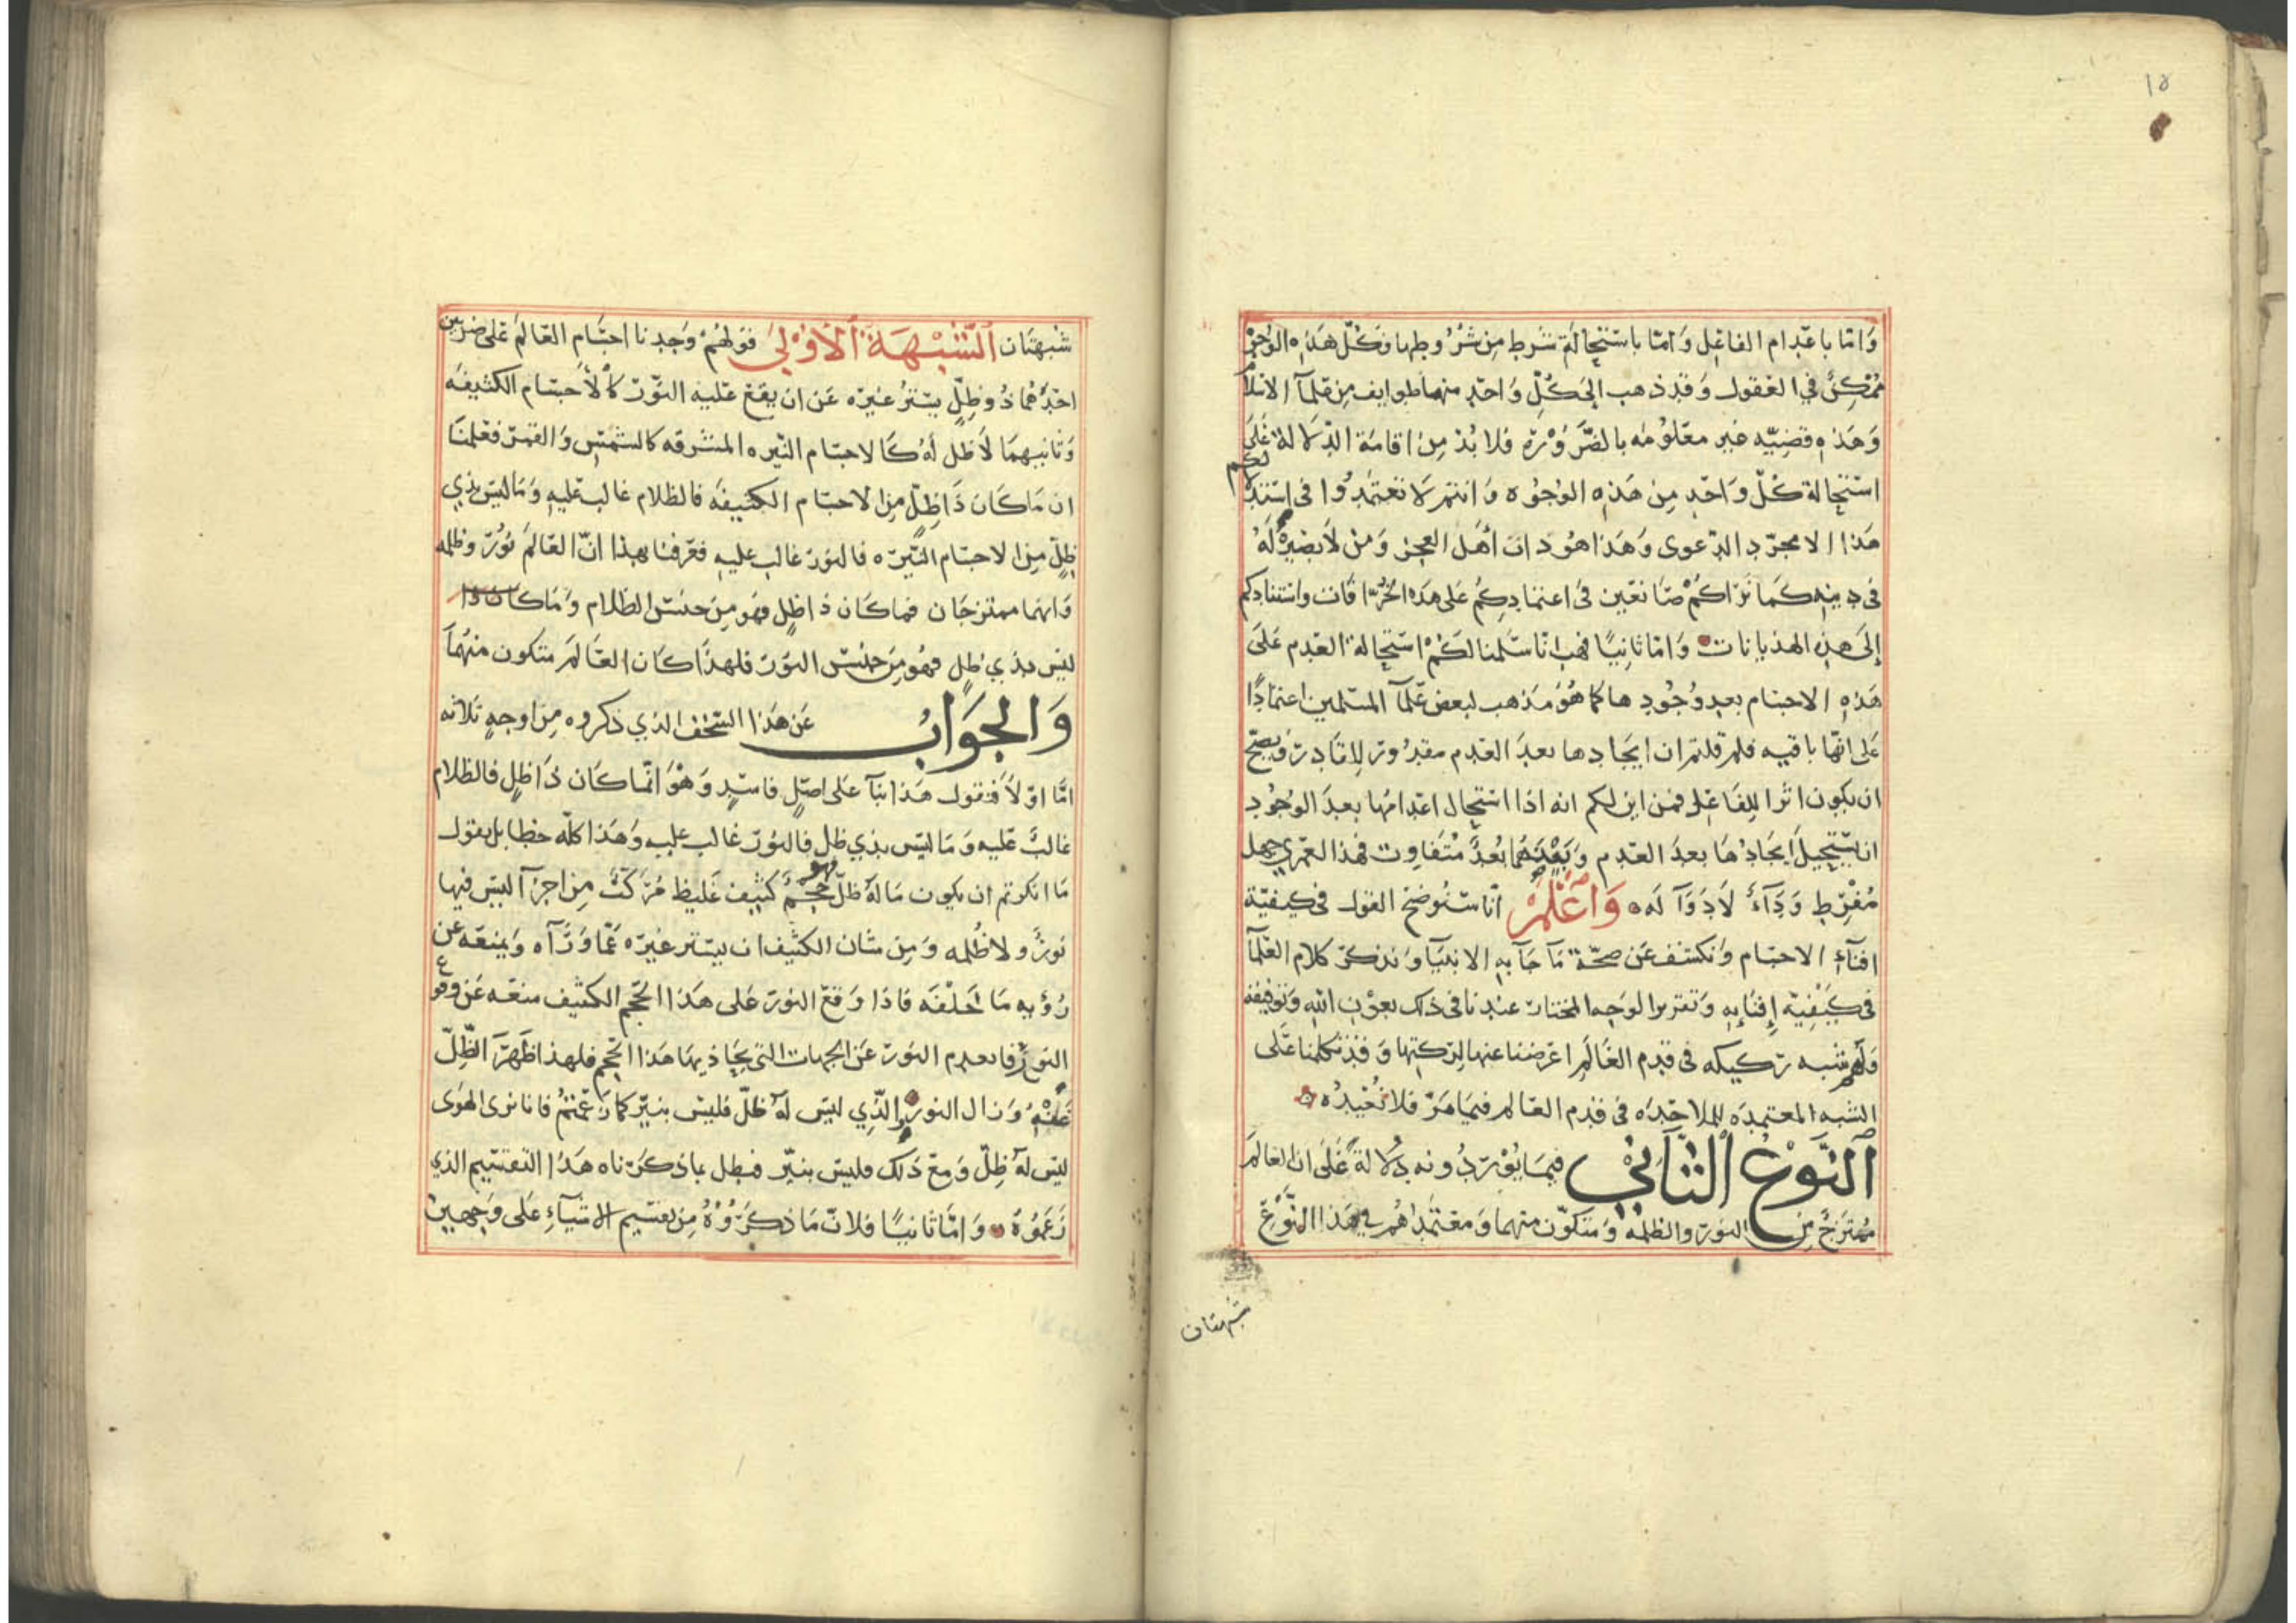 ١٥
وَامّا باعدام الفاعل وَامّا باستحالة شرط من شروطها وكلّ هذه الوجوه
ممكن في العقول وَقد ذهب الى كلّ وَاحد منها طوايف من علمآ الاسلام
وَهَذه قضيّه غير معلومه بالضروره فلا بدّ من اقامة الدّلالة على
استحالة كلّ وَاحد من هَذه الوجوه وَانتم لا تعتمدوا في استدلالكم
هَذا الا مجرّد الدعوى وَهَذا هو داب أهل العجز وَمن لا بصيرة لَه
في دينه كما نراكم صانعين في اعتمادكم على هذه الخرافات واستنادكم
إلى هذه الهذيانات وَامّا ثانيًا فهب انا سلمنا لكم استحالة العدم على
هَذه الاجسام بعد وُجودها كما هو مذهب لبعض علمآ المسلمين اعتمادًا
على انها باقيه فلم قلتم ان ايجادها بعد العدم مقدور للقادر ويصح
ان يكون اثرا للفاعل فمن اين لكم انه اذا استحال اعدامها بعد الوجود
ان يستحيل ايجادها بعد العدم وَبينهما بُعدٌ متفاوت فهذا لعمري جهل
مُفْرِط وَدَآءٌ لاَ دَوَآ لَه وَاعْلَمْ انّا سنوضح القول في كيفيّة
افنآءِ الاجسام وَنكشف عن صحّة مَا جَآ به الانبيآ وَنذكر كلام العلمآ
في كيفيّة إفنايه وَتقرير الوجه المختار عندنا في ذلك بعون الله وتوفيقه
وَلهم شبه ركيكه في قدم العالم اعرضنا عنها لركتها وَقد تكلمنا على
الشبه المعتمده للملاحده في قدم العالم فيما مرّ فلا نُعيدُه
اَلنَّوْعُ الثَّانِيْ فيما يوردونه دلالة على ان العالم
ممتزج من النور والظلمه وَمتكوّن منهما وَمعتمدهم في هذا النّوع
شبهتان
شبهتان اَلشُّبْهَةُ اَلأُوْلَى قولهم وَجدنا اجسام العالم على ضربين
احدهما ذو ظِلٍّ يستر غيره عَن ان يقع عليه النّور كالأجسام الكثيفه
وَثانيهما لاَ ظل لَه كالاجسام النّيره المشرقه كالشمس وَالقمر فعلمنا
ان ما كان ذَا ظِلٍّ من الاجسام الكثيفه فالظلام غالب عليه وَما ليس بذي
ظِلّ من الاجسام النّيره فالنور غالب عليه فعرفنا بهذا انّ العالم نور وظلمه
وَانهما ممتزجان فما كان ذا ظل فهو من جنس الظلام وَما كان ذا
ليس بذي ظل فهو من جنس النور فلهذا كان العالم متكون منهما
وَالجَوَابُ عَن هَذا السخف الذي ذكروه من اوجهٍ ثلاثه
امّا اوّلاً فنقول هَذا بنآ على اصلٍ فاسدٍ وَهو انّما كان ذا ظلٍ فالظلام
غالب عليه وَما ليس بذي ظل فالنور غالب عليه وَهذا كلّه خطا بل يقول
ما انكرتم ان يكون ما لَه ظلّ فهو جسم كثيف غليظ مُركّبٌ من اجزآ ليس فيها
نورٌ ولا ظُلمه وَمن شان الكثيف ان يستر غيره عمّا وَرَآه وَيمنعه عن
رُؤيه ما خلفه فاذا وَقع النور على هَذا الجسم الكثيف منعه عَن وقوع
النور فانعدم النور عن الجهات التي يحاذيها هَذا الجسم فلهذا ظهر الظّلّ
عَنْهُ وَزال النور والّذي ليس لَه ظلّ فليس بنيّر كما زعمتم فانا نرى الهوى
ليس لَه ظِلّ وَمع ذَلك فليس بنيّر فبطل بما ذكرناه هَذا التقسيم الذي
زَعَمُوْهُ وَامّا ثانيًا فلانّ ما ذكرُوْهُ من تقسيم الاشيآءِ على وَجهين